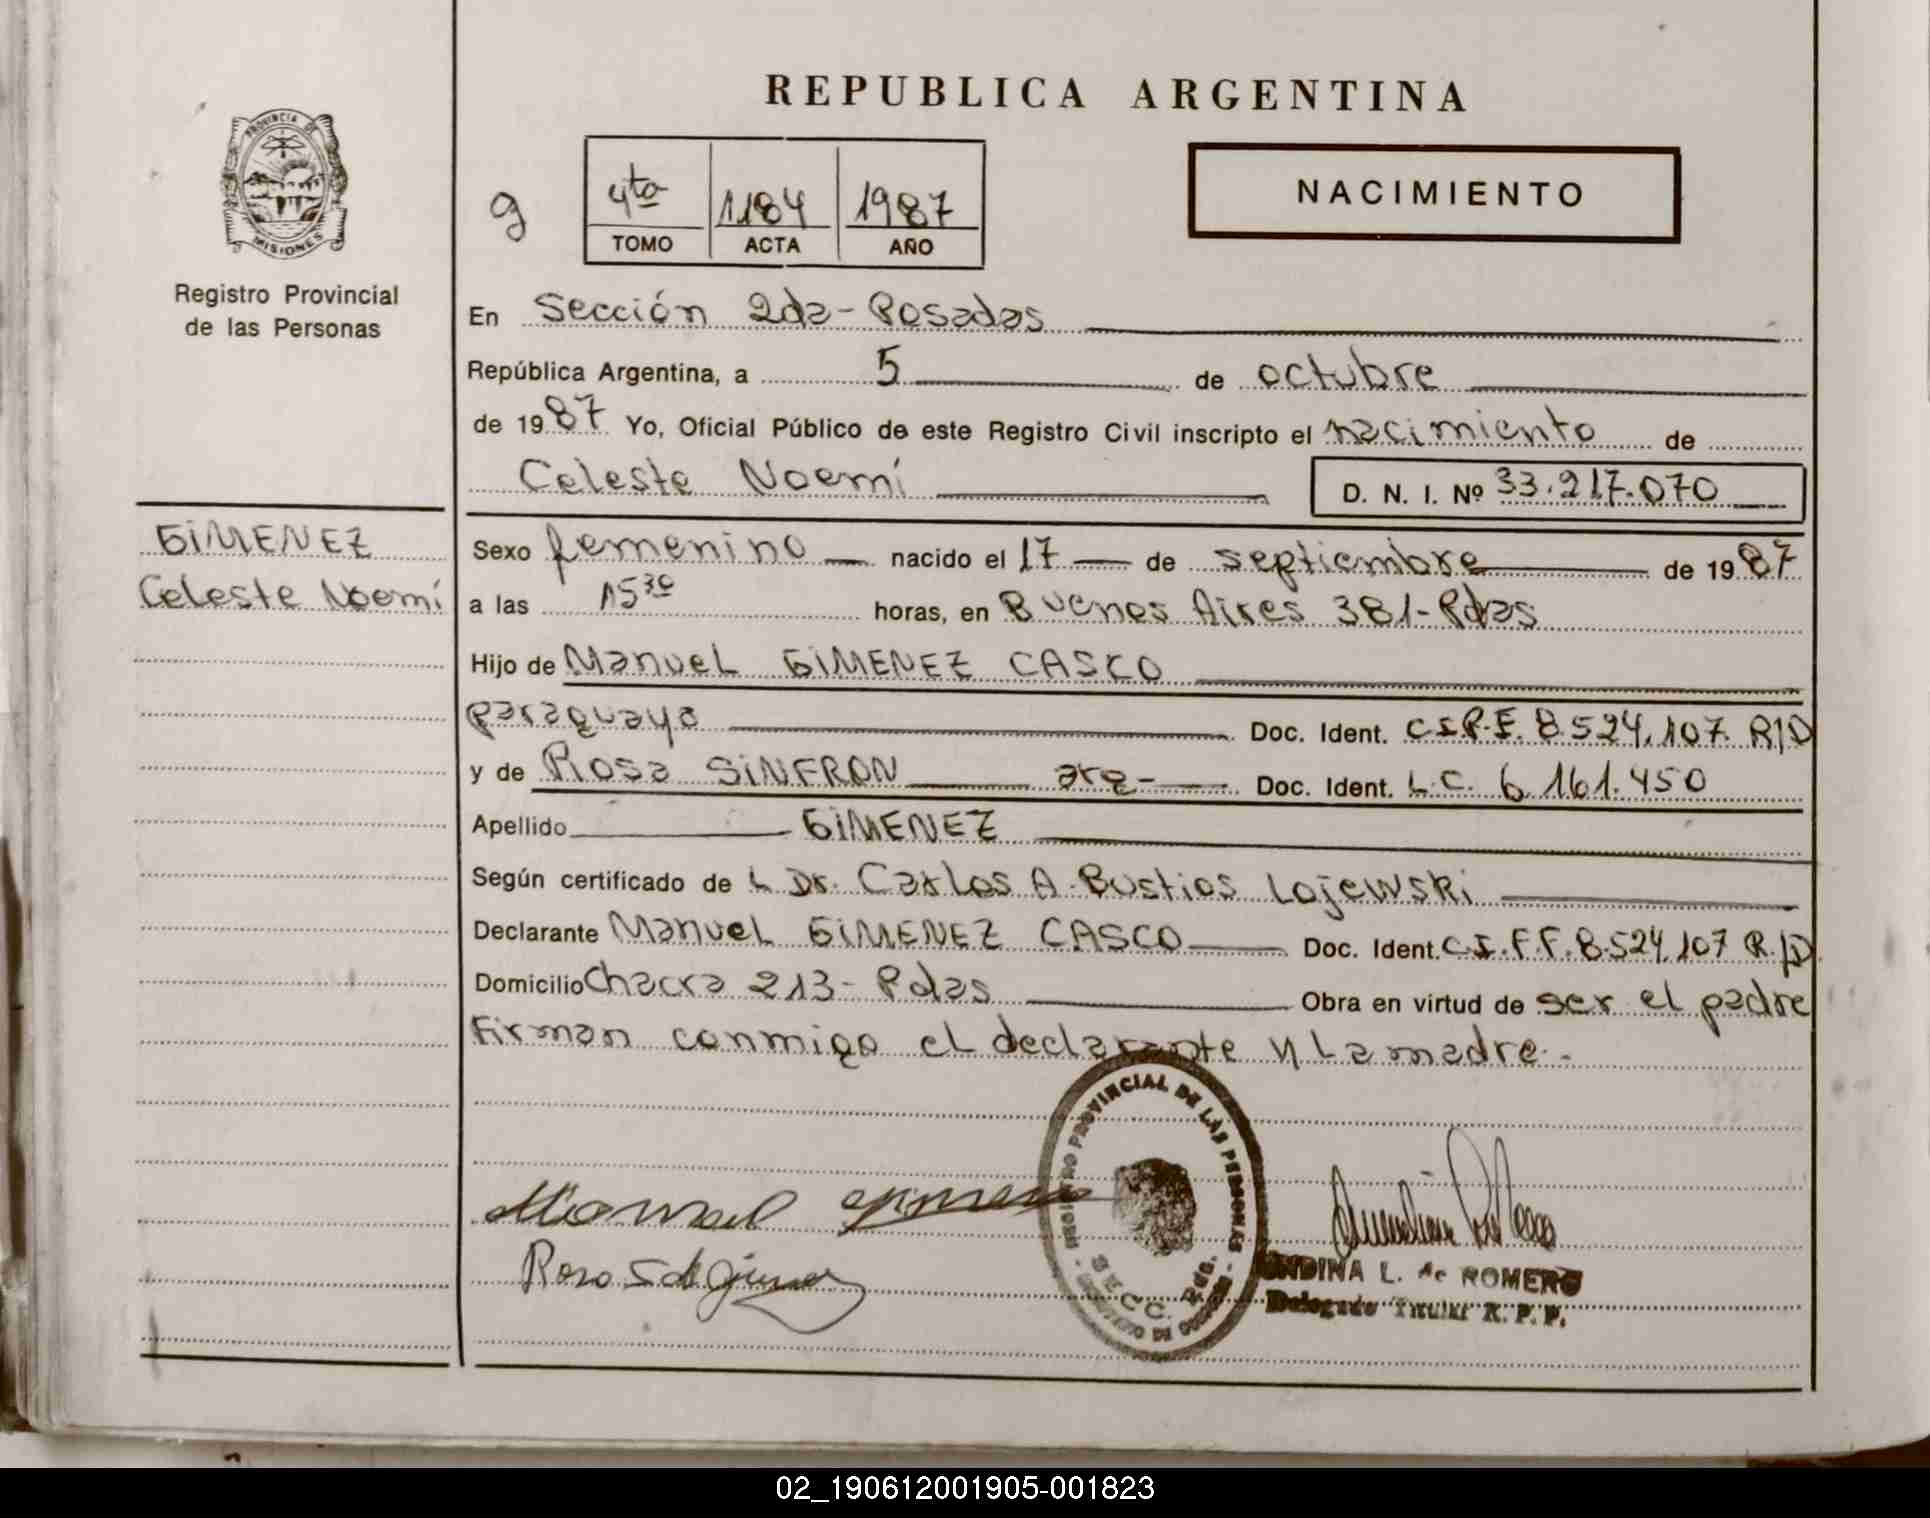 REPUBLICA ARGENTINA
PROVINCIA DE
MISIONES
Registro Provincial
de las Personas
g
4ta 1184 1987
TOMO ACTA AÑO
NACIMIENTO
En Sección 2da - Posadas
República Argentina, a 5 de octubre
de 1987 Yo, Oficial Público de este Registro Civil inscripto el nacimiento de
Celeste Noemí D. N. I. Nº 33.217.070
GIMENEZ
Celeste Noemí
Sexo femenino nacido el 17 de septiembre de 1987
a las 15 30 horas, en Buenos Aires 381 - Pdas
Hijo de Manuel GIMENEZ CASCO
paraguayo Doc. Ident. C.I.P.F. 8.524.107 R/D
y de Rosa SINFRON arg - Doc. Ident. L.C. 6.161.450
Apellido GIMENEZ
Según certificado de L Dr. Carlos A. Bustios Lojewski
Declarante Manuel GIMENEZ CASCO Doc. Ident. C.I.F.F. 8.524.107 R/D
Domicilio Chacra 213 - Pdas Obra en virtud de ser el padre
Firman conmigo el declarante y la madre.-
Manuel Gimenez
Rosa S de Gimenez
REGISTRO PROVINCIAL DE LAS PERSONAS
SECC. 2da PDAS.
ONDINA L. de ROMERO
Delegado Titular R. P. P.
02_190612001905-001823